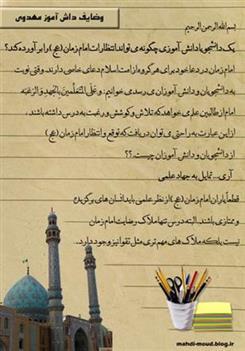 وضایف دانش آموز مهدوی
بسم الله الرحمن الرحیم
یک دانشجو یا دانش آموزی چگونه می تواند انتظارات امام زمان (عج) را برآورده کند؟
امام زمان در دعا خود برای هر گروه از امت اسلام دعای خاصی دارند. وقتی نوبت
به دانشجویان و دانش آموزان می رسد می خوانیم: و علی المتعلمین بالجهد و الرغبه
امام از طالبین علم می خواهد که تلاش و کوشش و رغبت به درس داشته باشند،
از این عبارت به راحتی می توان دریافت که توقع و انتظار امام زمان (عج)
از دانشجویان و دانش آموزان چیست.؟؟
آری... تمایل به جهاد علمی
قطعا یاران امام زمان (عج) از نظر علمی باید انسان های برگزیده
و ممتازی باشند. البته درس تنها ملاک رضایت امام زمان
نیست بلکه ملاک های مهم تری مثل تقوا نیز وجود دارد..
mahdi-moud.blog.ir